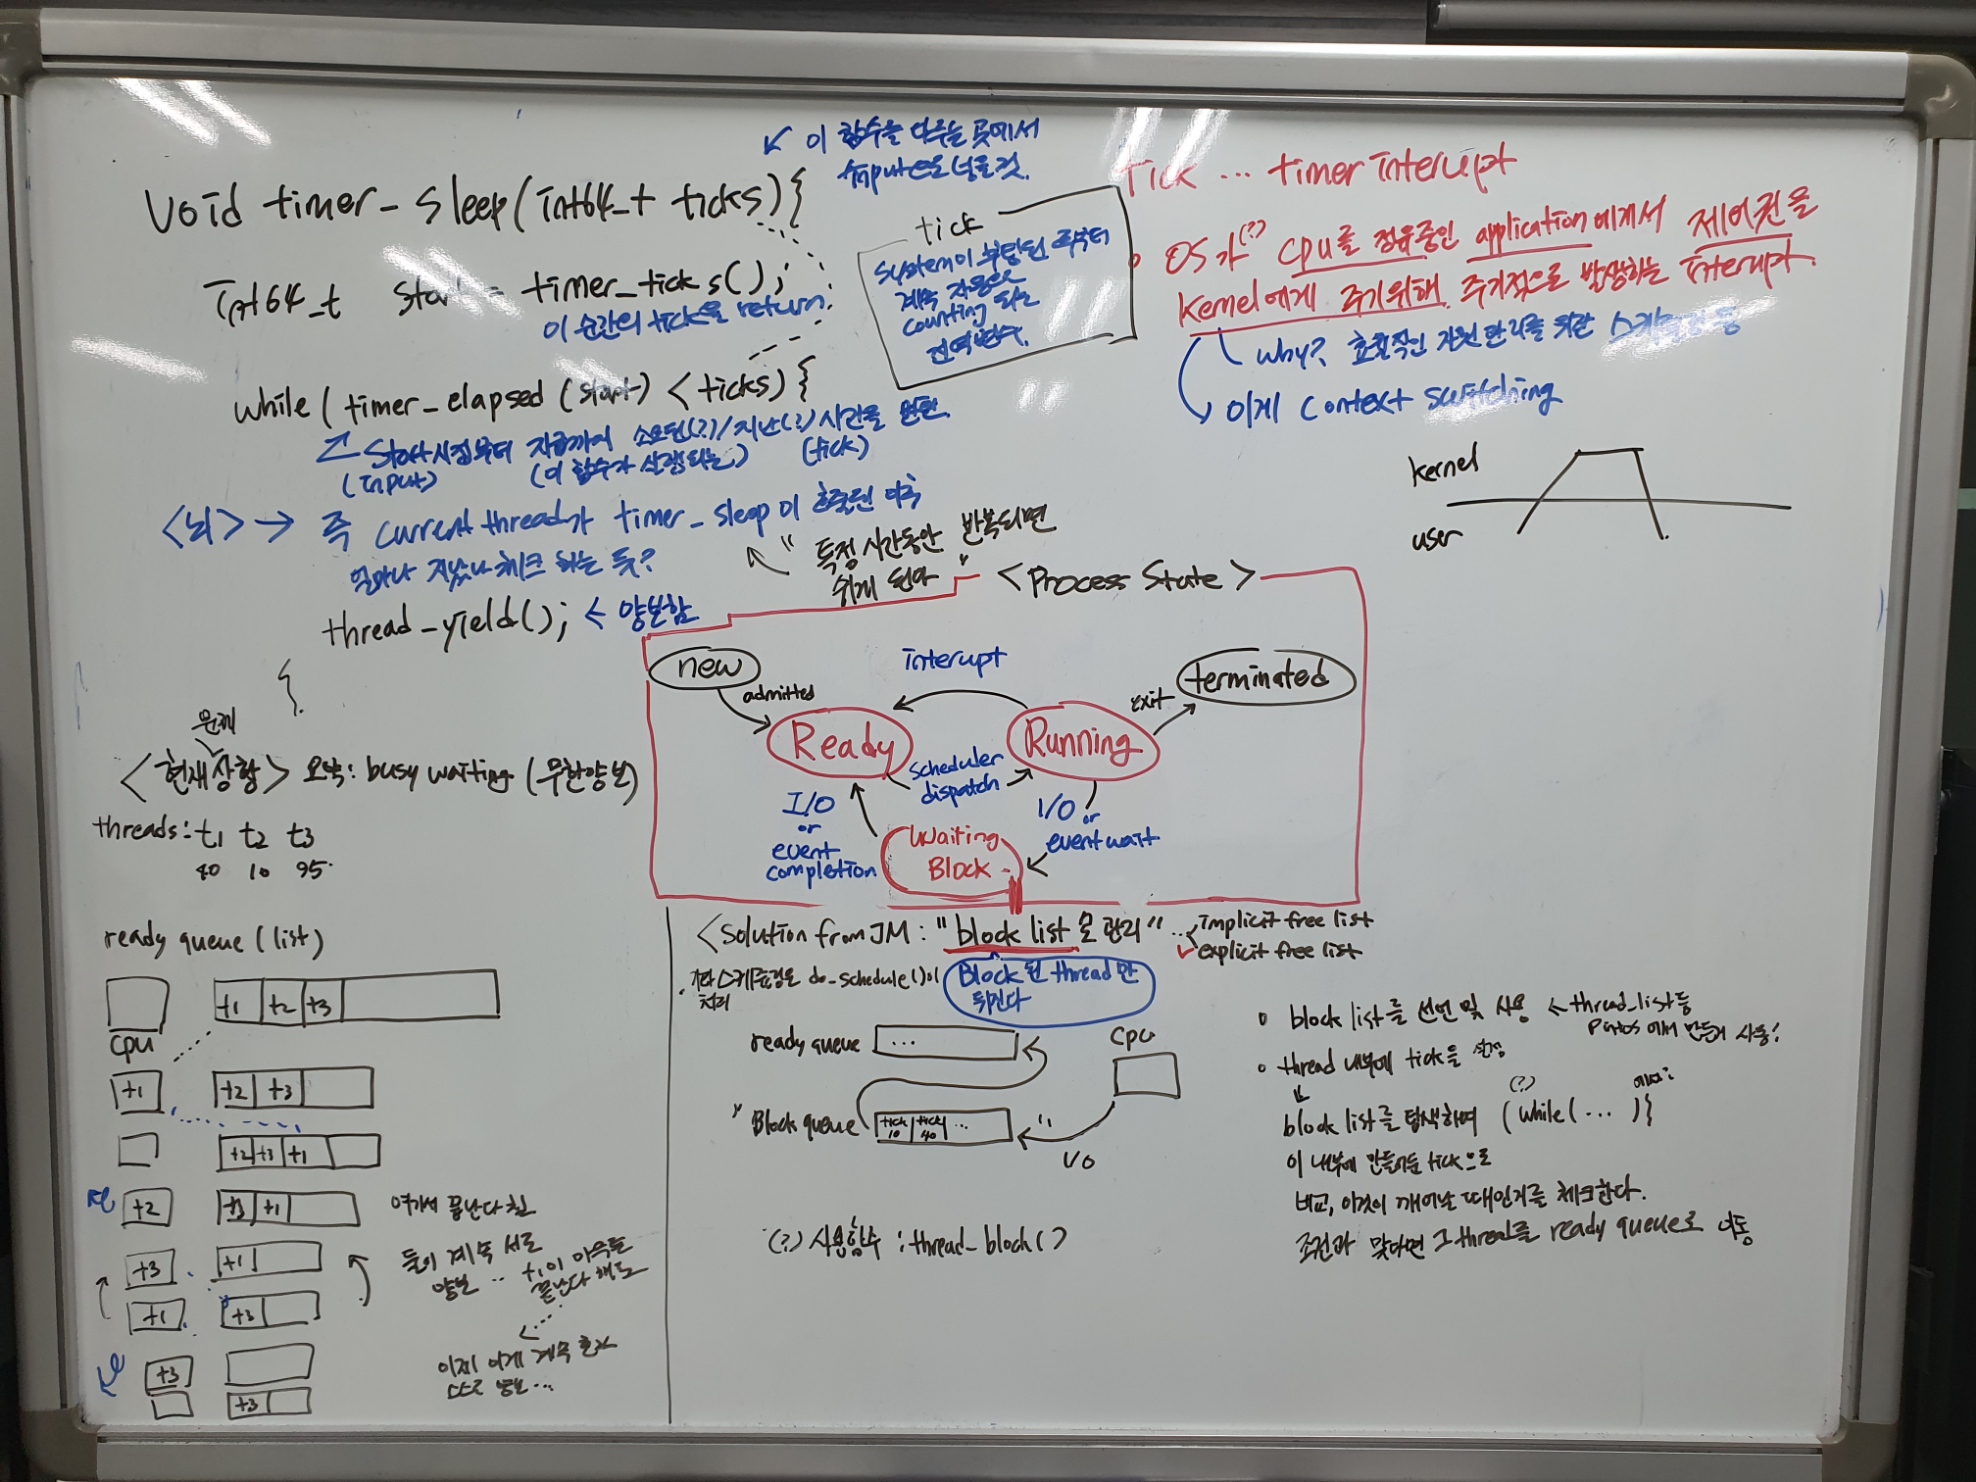 void timer_sleep(int64_t ticks){
↙ 이 함수를 다루는 곳에서
input으로 넣을 것.
int64_t start = timer_ticks();
이 순간의 tick을 return
while( timer_elapsed (start) < ticks) {
start시점부터 지금까지 소요된(?)/지난(?) 시간을 반환.
(input) (이 함수가 실행되는) (tick)
<뇌> → 즉 current thread가 timer_sleep이 호출된 이후
얼마나 지났나 체크 하는 듯?
" 특정 시간동안 반복되면
쉬게 된다 "
thread_yield(); ← 양보함
}
tick
system이 부팅된 후부터
계속 자동으로
counting 되는
전역변수.
Tick ... timer interupt
• OS가(?) cpu를 점유중인 application에게서 제어권을
kernel에게 주기위해 주기적으로 발생하는 interupt.
why? 효율적인 자원 관리를 위한 스케줄링 등
이게 context switching
kernel
user
<Process State>
new
admitted
interupt
terminated
exit
Ready
Running
scheduler
dispatch
I/O
or
event
completion
I/O
or
event wait
Waiting
Block
문제
<현재상황> 요약: busy waiting (무한양보)
threads: t1 t2 t3
40 10 95
ready queue (list)
t1 t2 t3
cpu
t1 t2 t3
t2 t3 t1
t2 t3 t1 여기서 끝난다 침
t3 t1 둘이 계속 서로
양보 ... t1이 마무리
끝난다 해도
t1 t3
t3 이제 이게 계속 혼자
스스로 양보...
t3
<Solution from JM : "block list로 관리" ... implicit free list
✓ explicit free list
. 기타 스케쥴링은 do_schedule()이
처리
Block 된 thread만
뒤진다
ready queue ...
cpu
" Block queue tick 10 tick 40 ... "
I/O
(?) 사용함수 : thread_block()
◦ block list를 선언 및 사용 ← thread_list등
pintos에서 만들어 사용!
◦ thread 내부에 tick을
block list를 탐색하며 (while( ... ){
(?)
이 내부에 만들어둔 tick으로
비교, 이것이 깨어날 때인지를 체크한다.
조건과 맞다면 그 thread를 ready queue로 이동